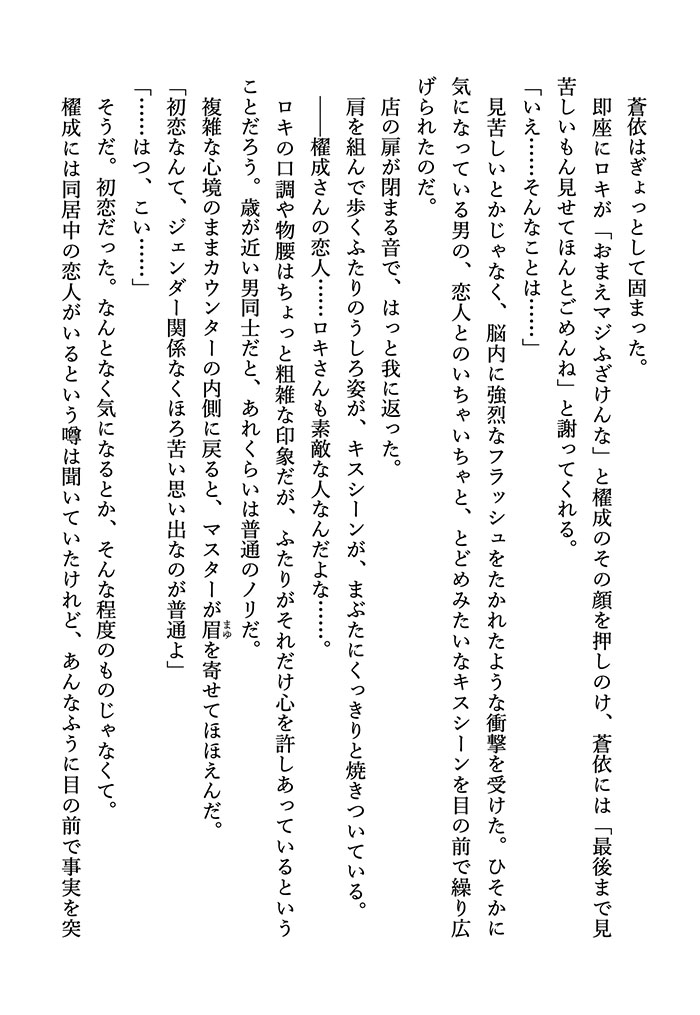 蒼依はぎょっとして固まった。
即座にロキが「おまえマジふざけんな」と櫂成のその顔を押しのけ、蒼依には「最後まで見
苦しいもん見せてほんとごめんね」と謝ってくれる。
「いえ……そんなことは……」
見苦しいとかじゃなく、脳内に強烈なフラッシュをたかれたような衝撃を受けた。ひそかに
気になっている男の、恋人とのいちゃいちゃと、とどめみたいなキスシーンを目の前で繰り広
げられたのだ。
店の扉が閉まる音で、はっと我に返った。
肩を組んで歩くふたりのうしろ姿が、キスシーンが、まぶたにくっきりと焼きついている。
――櫂成さんの恋人……ロキさんも素敵な人なんだよな……。
ロキの口調や物腰はちょっと粗雑な印象だが、ふたりがそれだけ心を許しあっているという
ことだろう。歳が近い男同士だと、あれくらいは普通のノリだ。
複雑な心境のままカウンターの内側に戻ると、マスターが眉まゆを寄せてほほえんだ。
「初恋なんて、ジェンダー関係なくほろ苦い思い出なのが普通よ」
「……はつ、こい……」
そうだ。初恋だった。なんとなく気になるとか、そんな程度のものじゃなくて。
櫂成には同居中の恋人がいるという噂は聞いていたけれど、あんなふうに目の前で事実を突